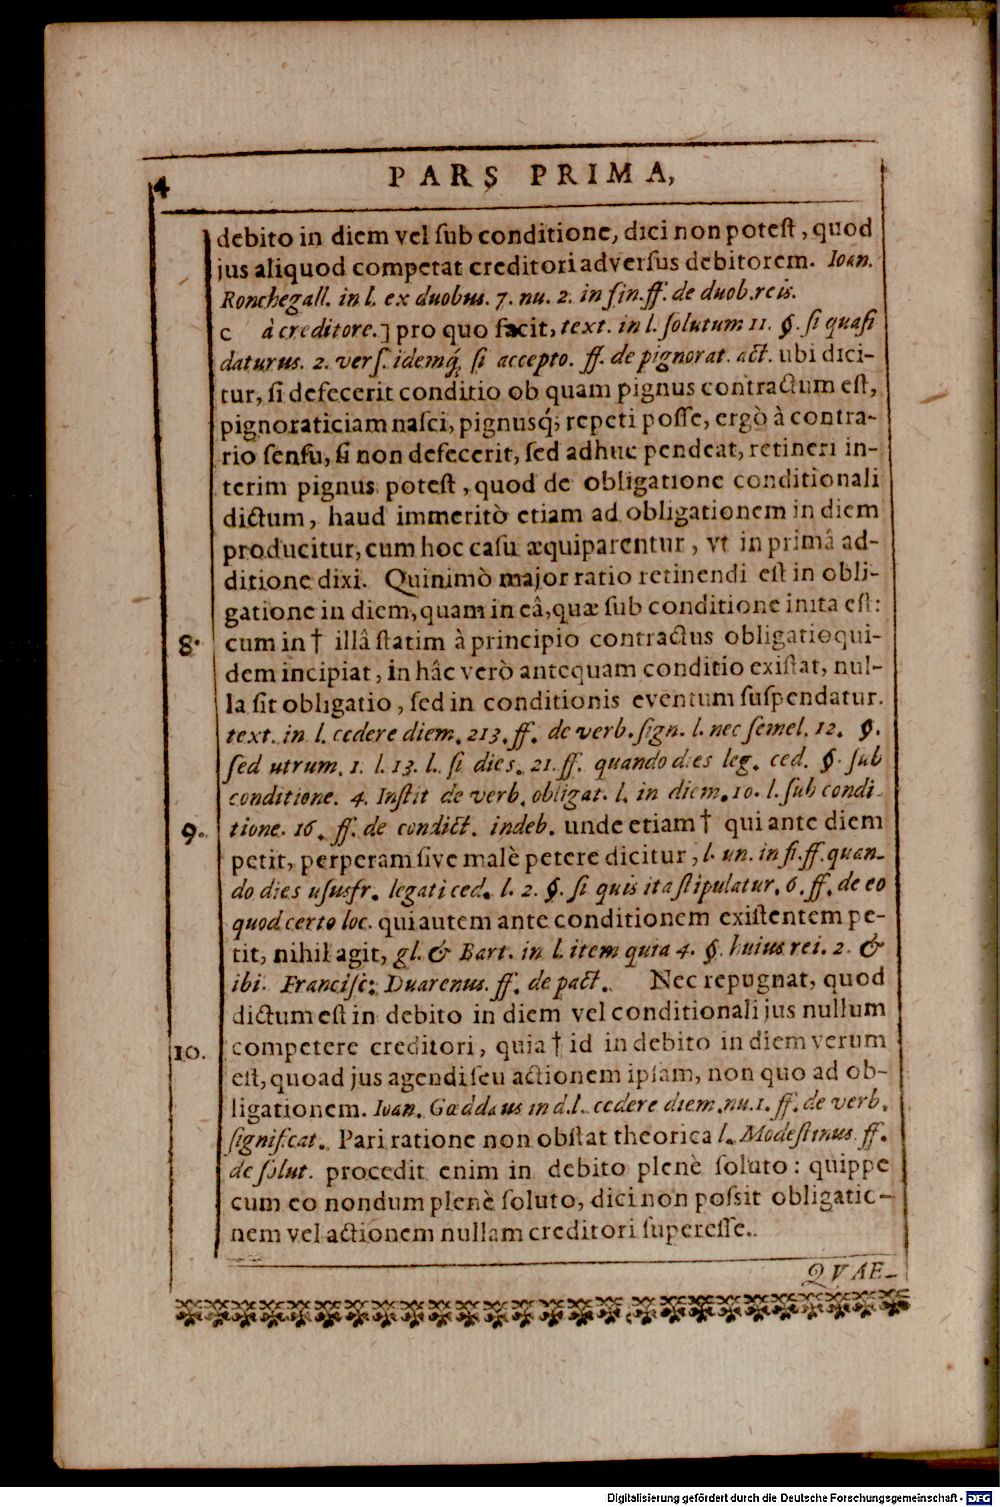 4
PARS PRIMA,
debito in diem vel sub conditione, dici non potest, quod
jus aliquod competat creditori adversus debitorem. Ioan.
Ronchegall. in l. ex duobus. 7. nu. 2. in fin. ff. de duob. reis.
c à creditore.] pro quo facit, text. in l. solutum 11. §. si quasi
daturus. 2. vers. idemq́; si accepto. ff. de pignorat. act. ubi dici-
tur, si defecerit conditio ob quam pignus contractum est,
pignoraticiam nasci, pignusq́; repeti posse, ergò à contra-
rio sensu, si non defecerit, sed adhuc pendeat, retineri in-
terim pignus potest, quod de obligatione conditionali
dictum, haud immeritò etiam ad obligationem in diem
producitur, cum hoc casu æquiparentur, vt in primâ ad-
ditione dixi. Quinimò major ratio retinendi est in obli-
gatione in diem, quam in eâ, quæ sub conditione inita est:
8. cum in † illâ statim à principio contractus obligatio qui-
dem incipiat, in hâc verò antequam conditio existat, nul-
la sit obligatio, sed in conditionis eventum suspendatur.
text. in l. cedere diem. 213. ff. de verb. sign. l. nec semel. 12. §.
sed utrum. 1. l. 13. l. si dies. 21. ff. quando dies leg. ced. §. sub
conditione. 4. Instit de verb. obligat. l. in diem. 10. l. sub condi-
9. tione. 16. ff. de condict. indeb. unde etiam † qui ante diem
petit, perperam sive malè petere dicitur, l. un. in fi. ff. quan-
do dies ususfr. legati ced. l. 2. §. si quis ita stipulatur. 6. ff. de eo
quod certo loc. qui autem ante conditionem existentem pe-
tit, nihil agit, gl. & Bart. in l. item quia 4. §. huius rei. 2. &
ibi. Francisc: Duarenus. ff. de pact. Nec repugnat, quod
dictum est in debito in diem vel conditionali jus nullum
10. competere creditori, quia † id in debito in diem verum
est, quoad jus agendi seu actionem ipsam, non quo ad ob-
ligationem. Ioan. Gœddaus in d. l. cedere diem. nu. 1. ff. de verb.
significat. Pari ratione non obstat theorica l. Modestinus. ff.
de solut. procedit enim in debito plenè soluto: quippe
cum eo nondum plenè soluto, dici non possit obligatio-
nem vel actionem nullam creditori superesse.
QVAE-
Digitalisierung gefördert durch die Deutsche Forschungsgemeinschaft - DFG